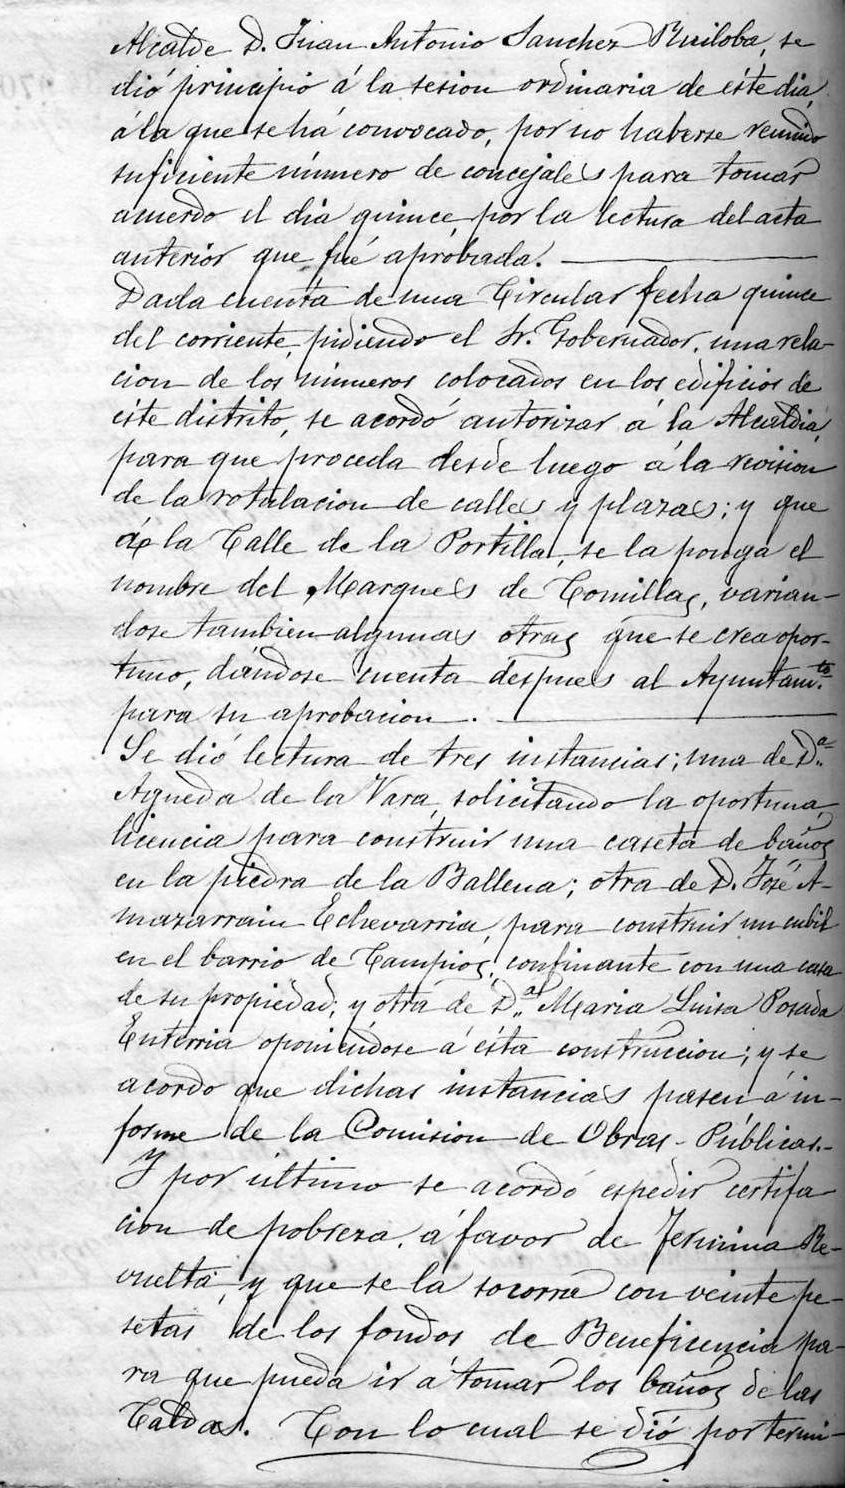 Alcalde D. Juan Antonio Sanchez Ruiloba, se
dió principio á la sesion ordinaria de éste dia,
á la que se há convocado, por no haberse reunido
suficiente número de concejales para tomar
acuerdo el dia quince, por la lectura del acta
anterior que fué aprobada.
Dada cuenta de una Circular fecha quince
del corriente, pidiendo el Sr. Gobernador, una rela-
cion de los números colocados en los edificios de
éste distrito, se acordó autorizar á la Alcaldia,
para que proceda desde luego á la revision
de la rotulacion de calles y plazas; y que
á la Calle de la Portilla, se la ponga el
nombre del Marques de Comillas, varian-
dose tambien algunas otras que se crea opor-
tuno, dándose cuenta despues al Ayuntam.to
para su aprobacion.
Se dió lectura de tres instancias; una de D.a
Agueda de la Vara, solicitando la oportuna
licencia para construir una caseta de baños
en la piedra de la Ballena; otra de D. José A-
mazarrain Echevarria, para construir un cubil
en el barrio de Campios, confinante con una casa
de su propiedad; y otra de D.a Maria Luisa Posada
Enterria oponiéndose á ésta construccion; y se
acordo que dichas instancias pasen á in-
forme de la Comision de Obras-Públicas.-
Y por último se acordó espedir certifa
cion de pobreza, á favor de Jesusina Re-
vuelta, y que se la socorra con veinte pe-
setas de los fondos de Beneficencia pa-
ra que pueda ir á tomar los baños de las
Caldas. Con lo cual se dió por termi-